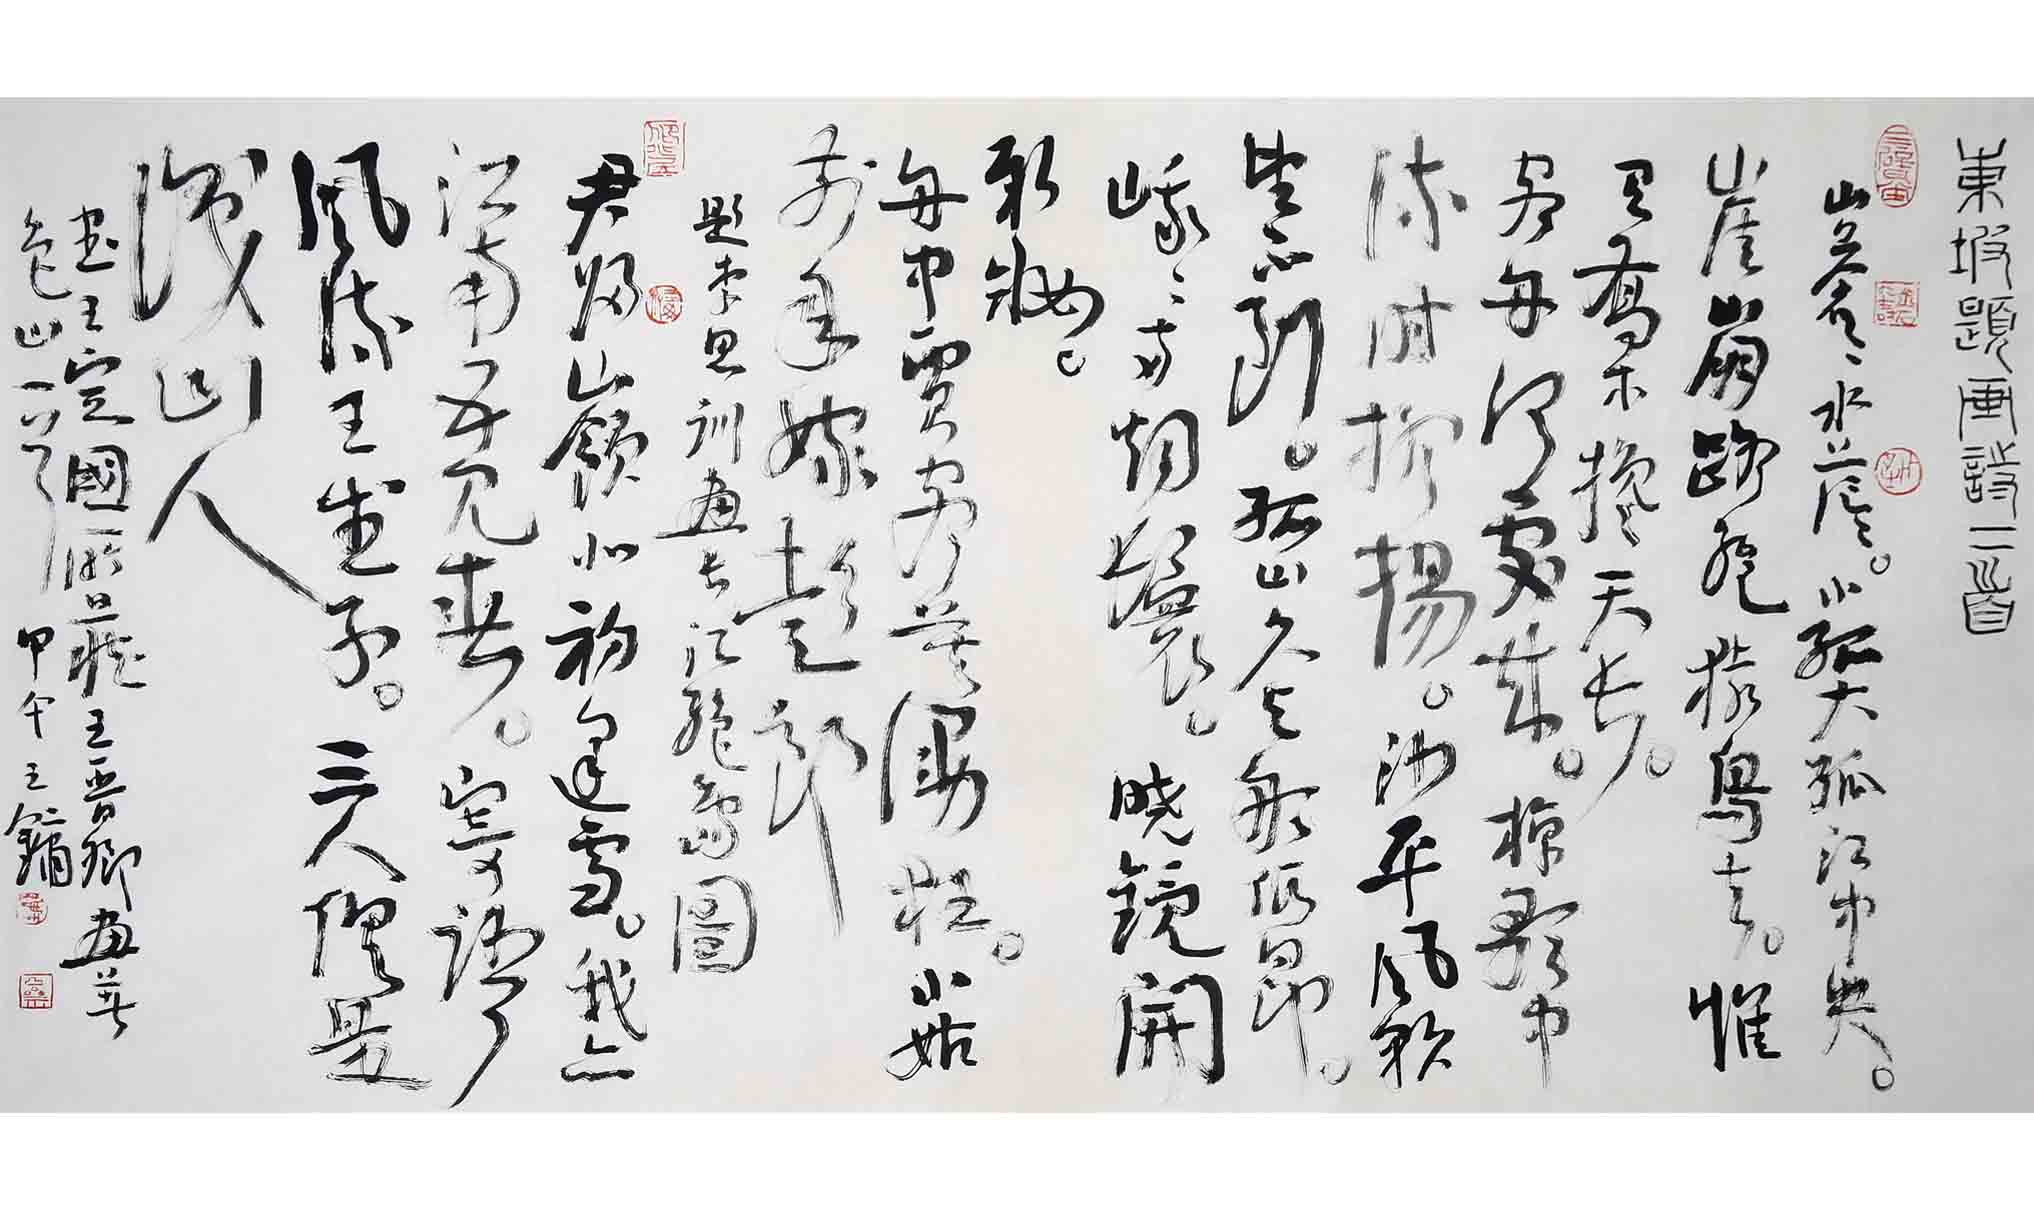 東坡題画詩二首
山蒼々水茫茫。小孤大孤江中央。
崖崩路絕猿鳥去。惟
有喬木攙天長。
客舟何處來。棹歌中
流抑揚。沙平風軟
望不到。孤山久與船低昂。
峨々兩烟鬟。曉鏡開
新妝。
舟中賈客莫漫狂。小姑
前年嫁彭郎
題李思訓畫長江絕島圖
君歸山嶺北初逢雪。我亦
江南五見春。寄語
風流王武子。三人俱是
識山人
書王定國所藏王晉卿畫著
色山一首 甲午 王鏞